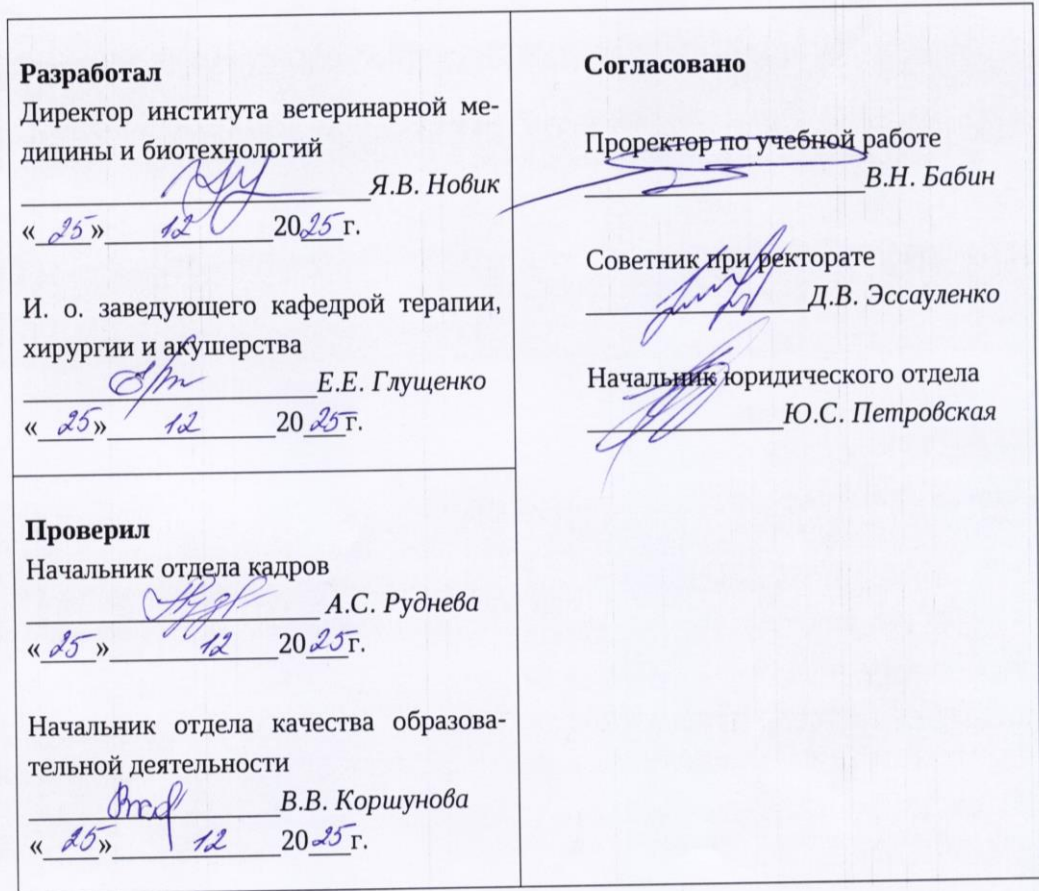 Разработал
Директор института ветеринарной ме-
дицины и биотехнологий
Я.В. Новик
«25» 12 2025 г.
И. о. заведующего кафедрой терапии,
хирургии и акушерства
Е.Е. Глущенко
«25» 12 2025г.
Проверил
Начальник отдела кадров
А.С. Руднева
«25» 12 2025г.
Начальник отдела качества образова-
тельной деятельности
В.В. Коршунова
«25» 12 2025г.
Согласовано
Проректор по учебной работе
В.Н. Бабин
Советник при ректорате
Д.В. Эссауленко
Начальник юридического отдела
Ю.С. Петровская